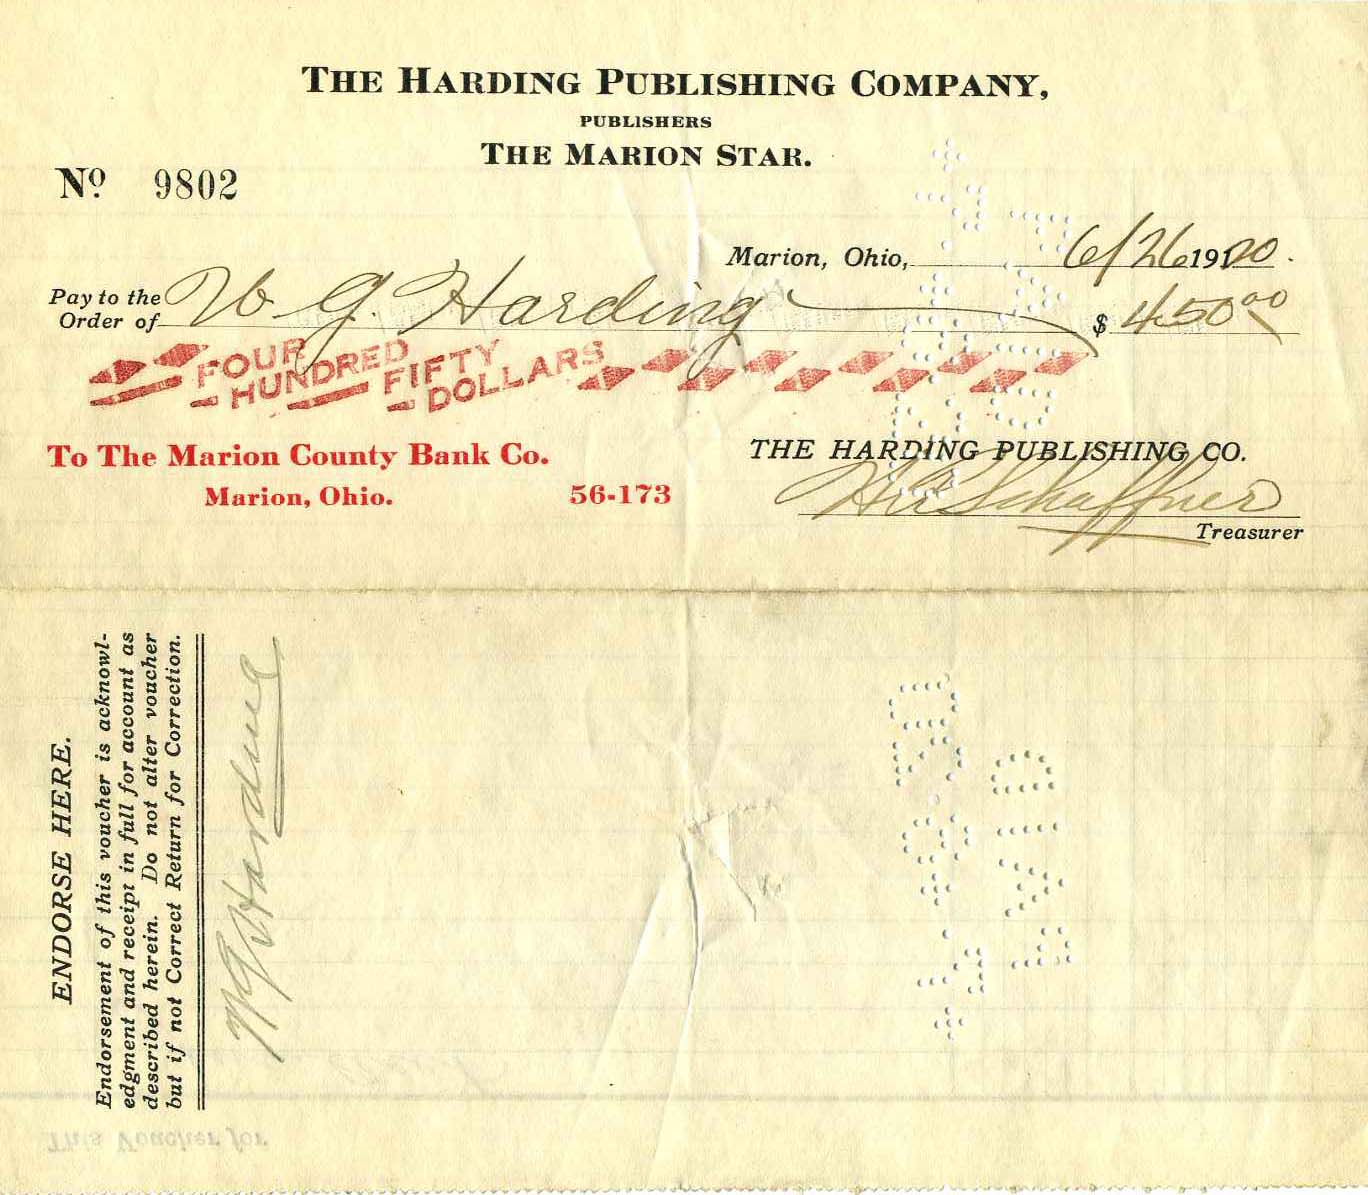 THE HARDING PUBLISHING COMPANY,
PUBLISHERS
THE MARION STAR.
Nº 9802
Marion, Ohio, 6/26 1920.
Pay to the
Order of W G. Harding $ 450.00
FOUR HUNDRED FIFTY DOLLARS
To The Marion County Bank Co.
Marion, Ohio. 56-173
THE HARDING PUBLISHING CO.
HASchaffner
Treasurer
ENDORSE HERE.
Endorsement of this voucher is acknowl-
edgment and receipt in full for account as
described herein. Do not alter voucher
but if not Correct Return for Correction.
WGHarding
PAID
This Voucher for